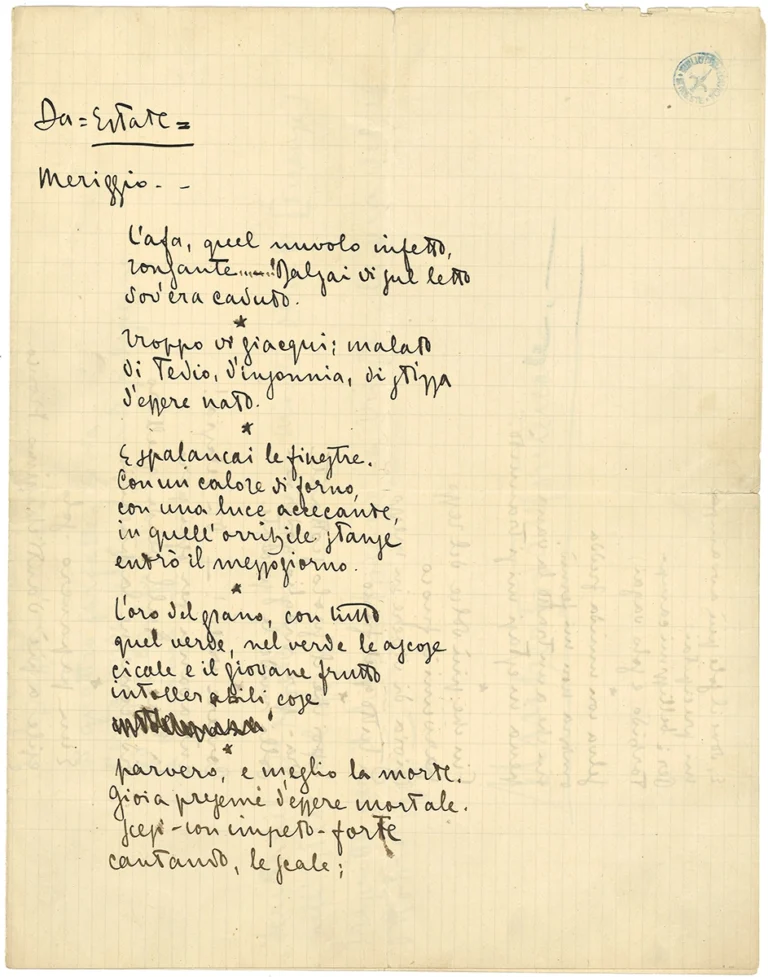 Da = Estate =
Meriggio. -
L'afa, quel nuvolo infetto,
ronzante......! Balzai di sul letto
dov'era caduto.
*
Troppo vi giacqui; malato
di tedio, d'insonnia, di stizza
d'essere nato.
*
E spalancai le finestre.
Con un calore di forno,
con una luce accecante,
in quell'orribile stanze
entrò il mezzogiorno.
*
L'oro del grano, con tutto
quel verde, nel verde le ascose
cicale e il giovane frutto
intollerabili cose
*
parvero, e meglio la morte.
Gioia presemi d'essere mortale.
Scesi - con impeto - forte
cantando, le scale;